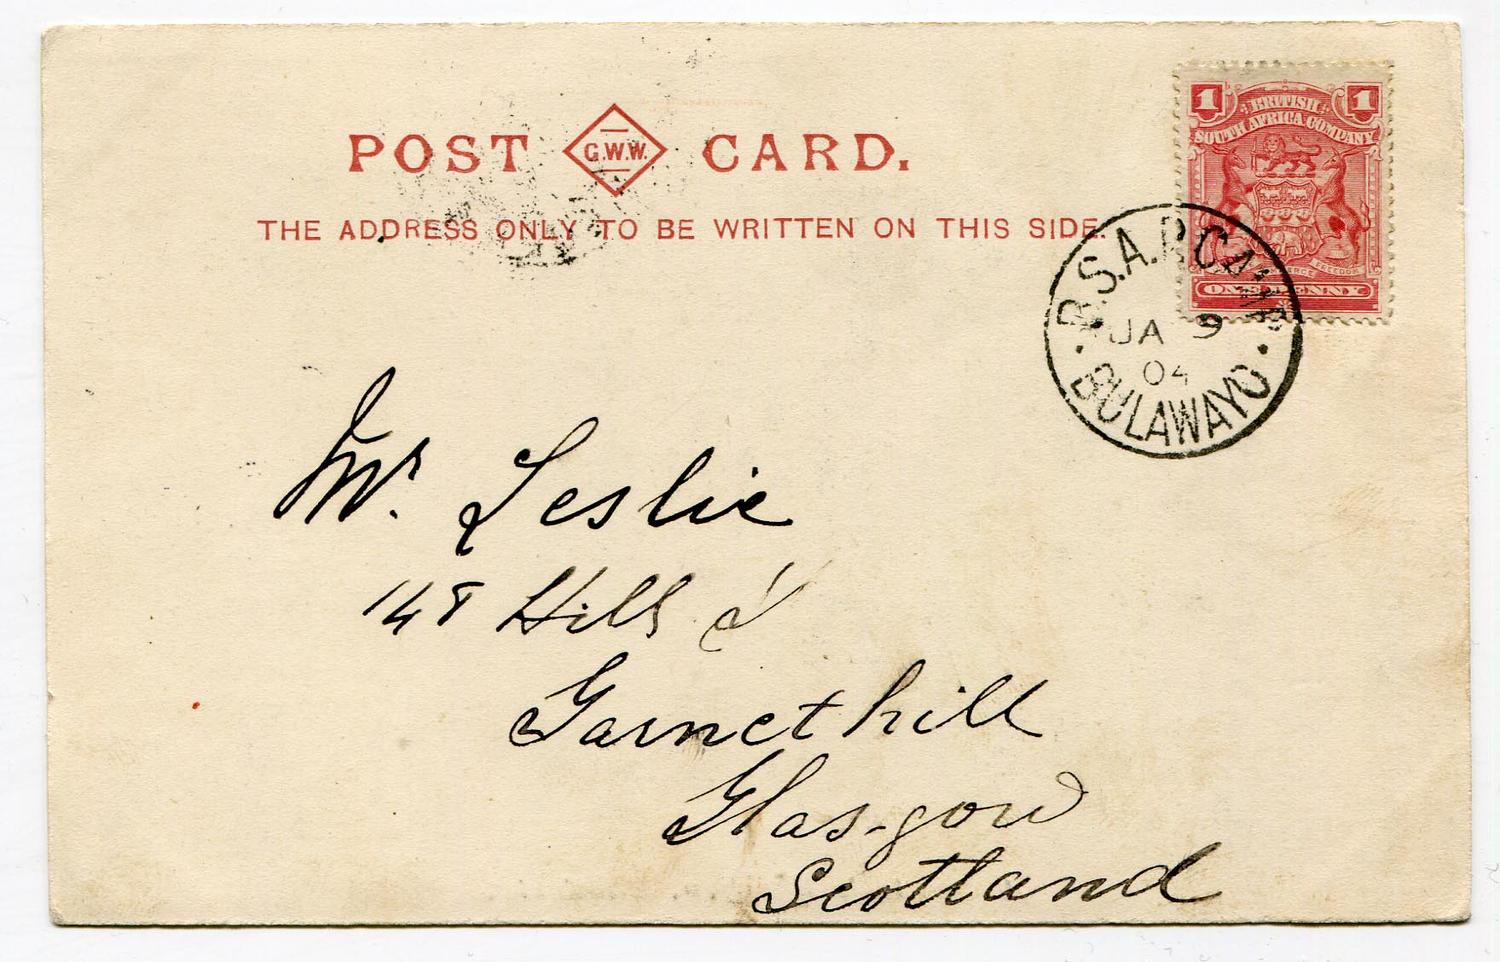 POST G.W.W. CARD.
THE ADDRESS ONLY TO BE WRITTEN ON THIS SIDE.
1 BRITISH 1
SOUTH AFRICA COMPANY
FREEDOM
ONE PENNY
B.S.A.P. CAMP
JA 9
04
BULAWAYO
Mr. Leslie
148 Hill St
Garnethill
Glas-gow
Scotland